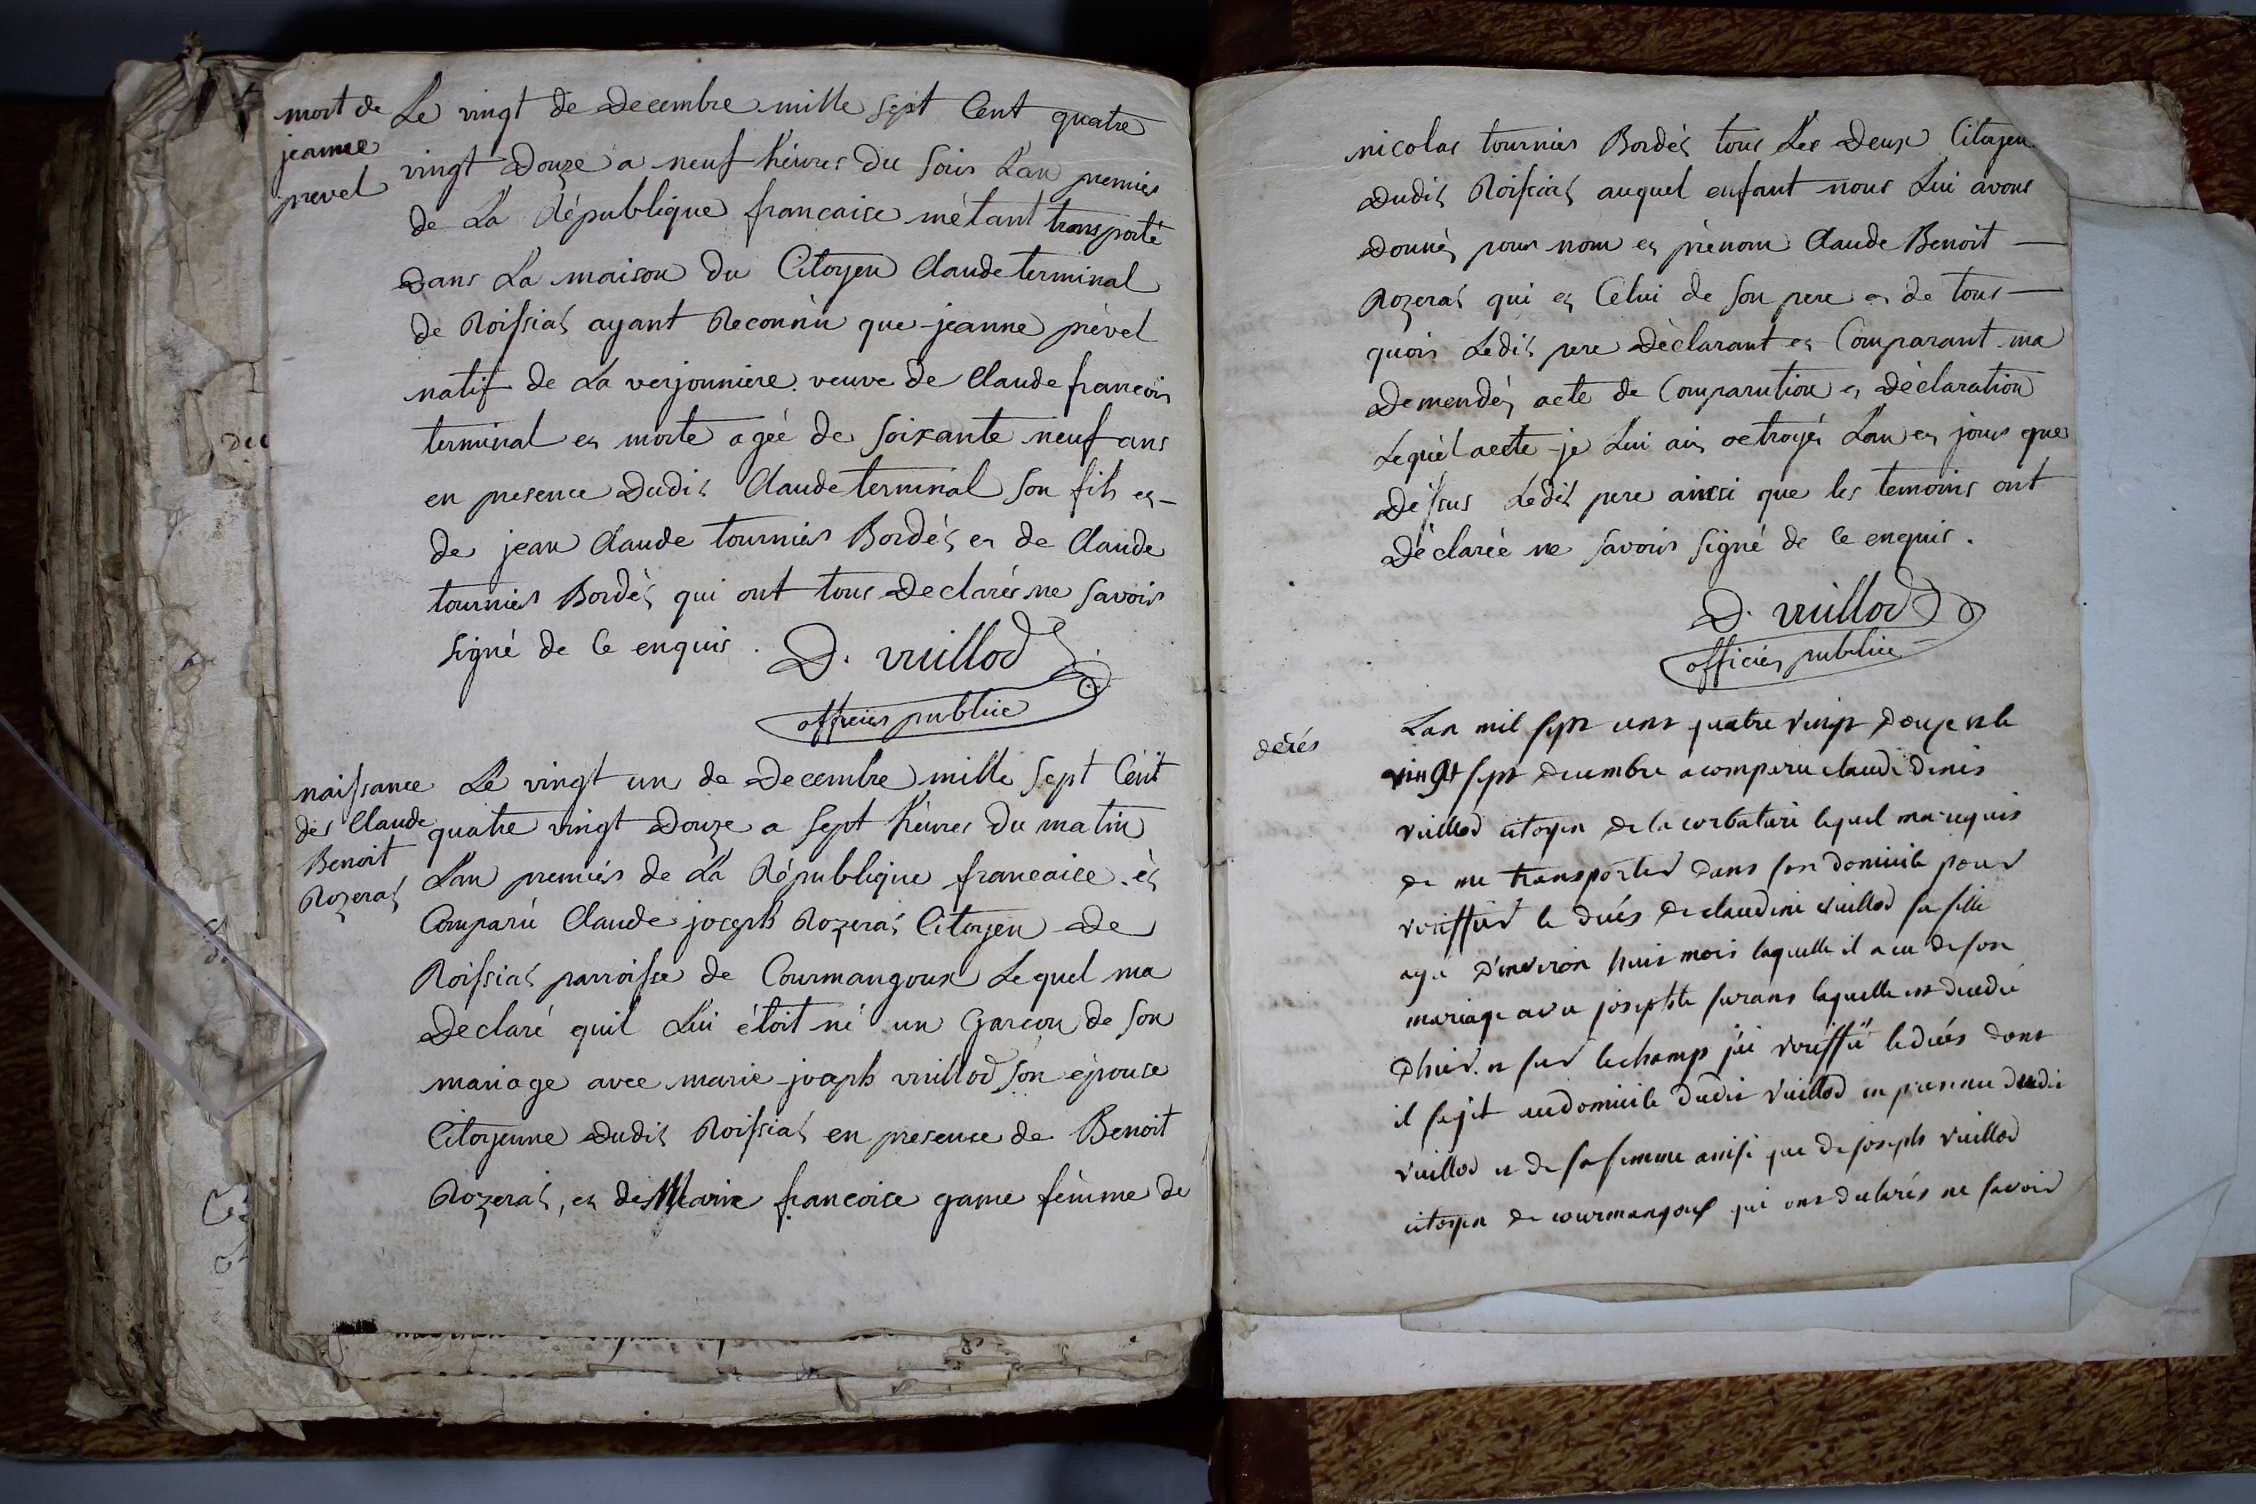 mort de
jeanne
prevel
Le vingt de Decembre mille sept Cent quatre
vingt Douze a neuf héures du soir L'an premier
de La République francaise métant transporté
Dans La maison du Citoyen Claude terminal
de Roissiat ayant Reconnù que jeanne prével
natif de La verjonniere. veuve de Claude francois
terminal et morte agéé de soixante neuf ans
en presence Dudit Claude terminal son fils et
de jean Claude tournier Bordét et de Claude
tournier Bordèt qui ont tous Declarés ne savoir
signé de Ce enquis . D. vuillod
officier publice
naissance
des Claude
Benoit
Rozerat
Le vingt un de Decembre mille sept Cent
quatre vingt Douze a sept héures Du matin
L'an premier de La République francaice. èt
Comparù Claude joseph Rozerat Citoyen de
Roissiat parroisse de Courmangoux Lequel ma
Declaré quil Lui étoit né un Garcon de son
mariage avec marie joseph vuillod son épouse
Citoyenne Dudit Roissiat en presence de Benoit
Rozerat, et de Marie francoise game fémme de
nicolas tournier Bordét tous Les Deux Citoyen
Dudit Roissiat auquel enfant nous Lui avons
Donnéz pour nom et prènom Claude Benoit —
Rozerat qui et Celui de son pere et de tous —
quois Ledit pere Dèclarant et Comparant ma
Demendéz acte de Comparution et Dèclaration
Lequèl acte je Lui ait octroyér L'an et jour que
Déssus Ledit pere ainsi que les temoins ont
Déclareé ne savoir signé de Ce enquis .
D. vuillod
officiér publice
décés
Lan mil sept cent quatre vingt douze et le
vingt sept decembre a comperu claude denis
vuillod citoyen de la corbature lequel ma requis
de me transporter dans son domicile pour
veriffier le decés de claudine vuillod sa fille
agé d'environ huit mois laquelle il a eu de son
mariage avec josephte surans laquelle est decedé
d'hier. et sur lechamp j'ai veriffié ledecés dont
il sagit audomicile dudit vuillod en presence dudit
vuillod et de sa femme ainsi que de joseph vuillod
citoyen de courmangoux qui ont declarés ne savoir